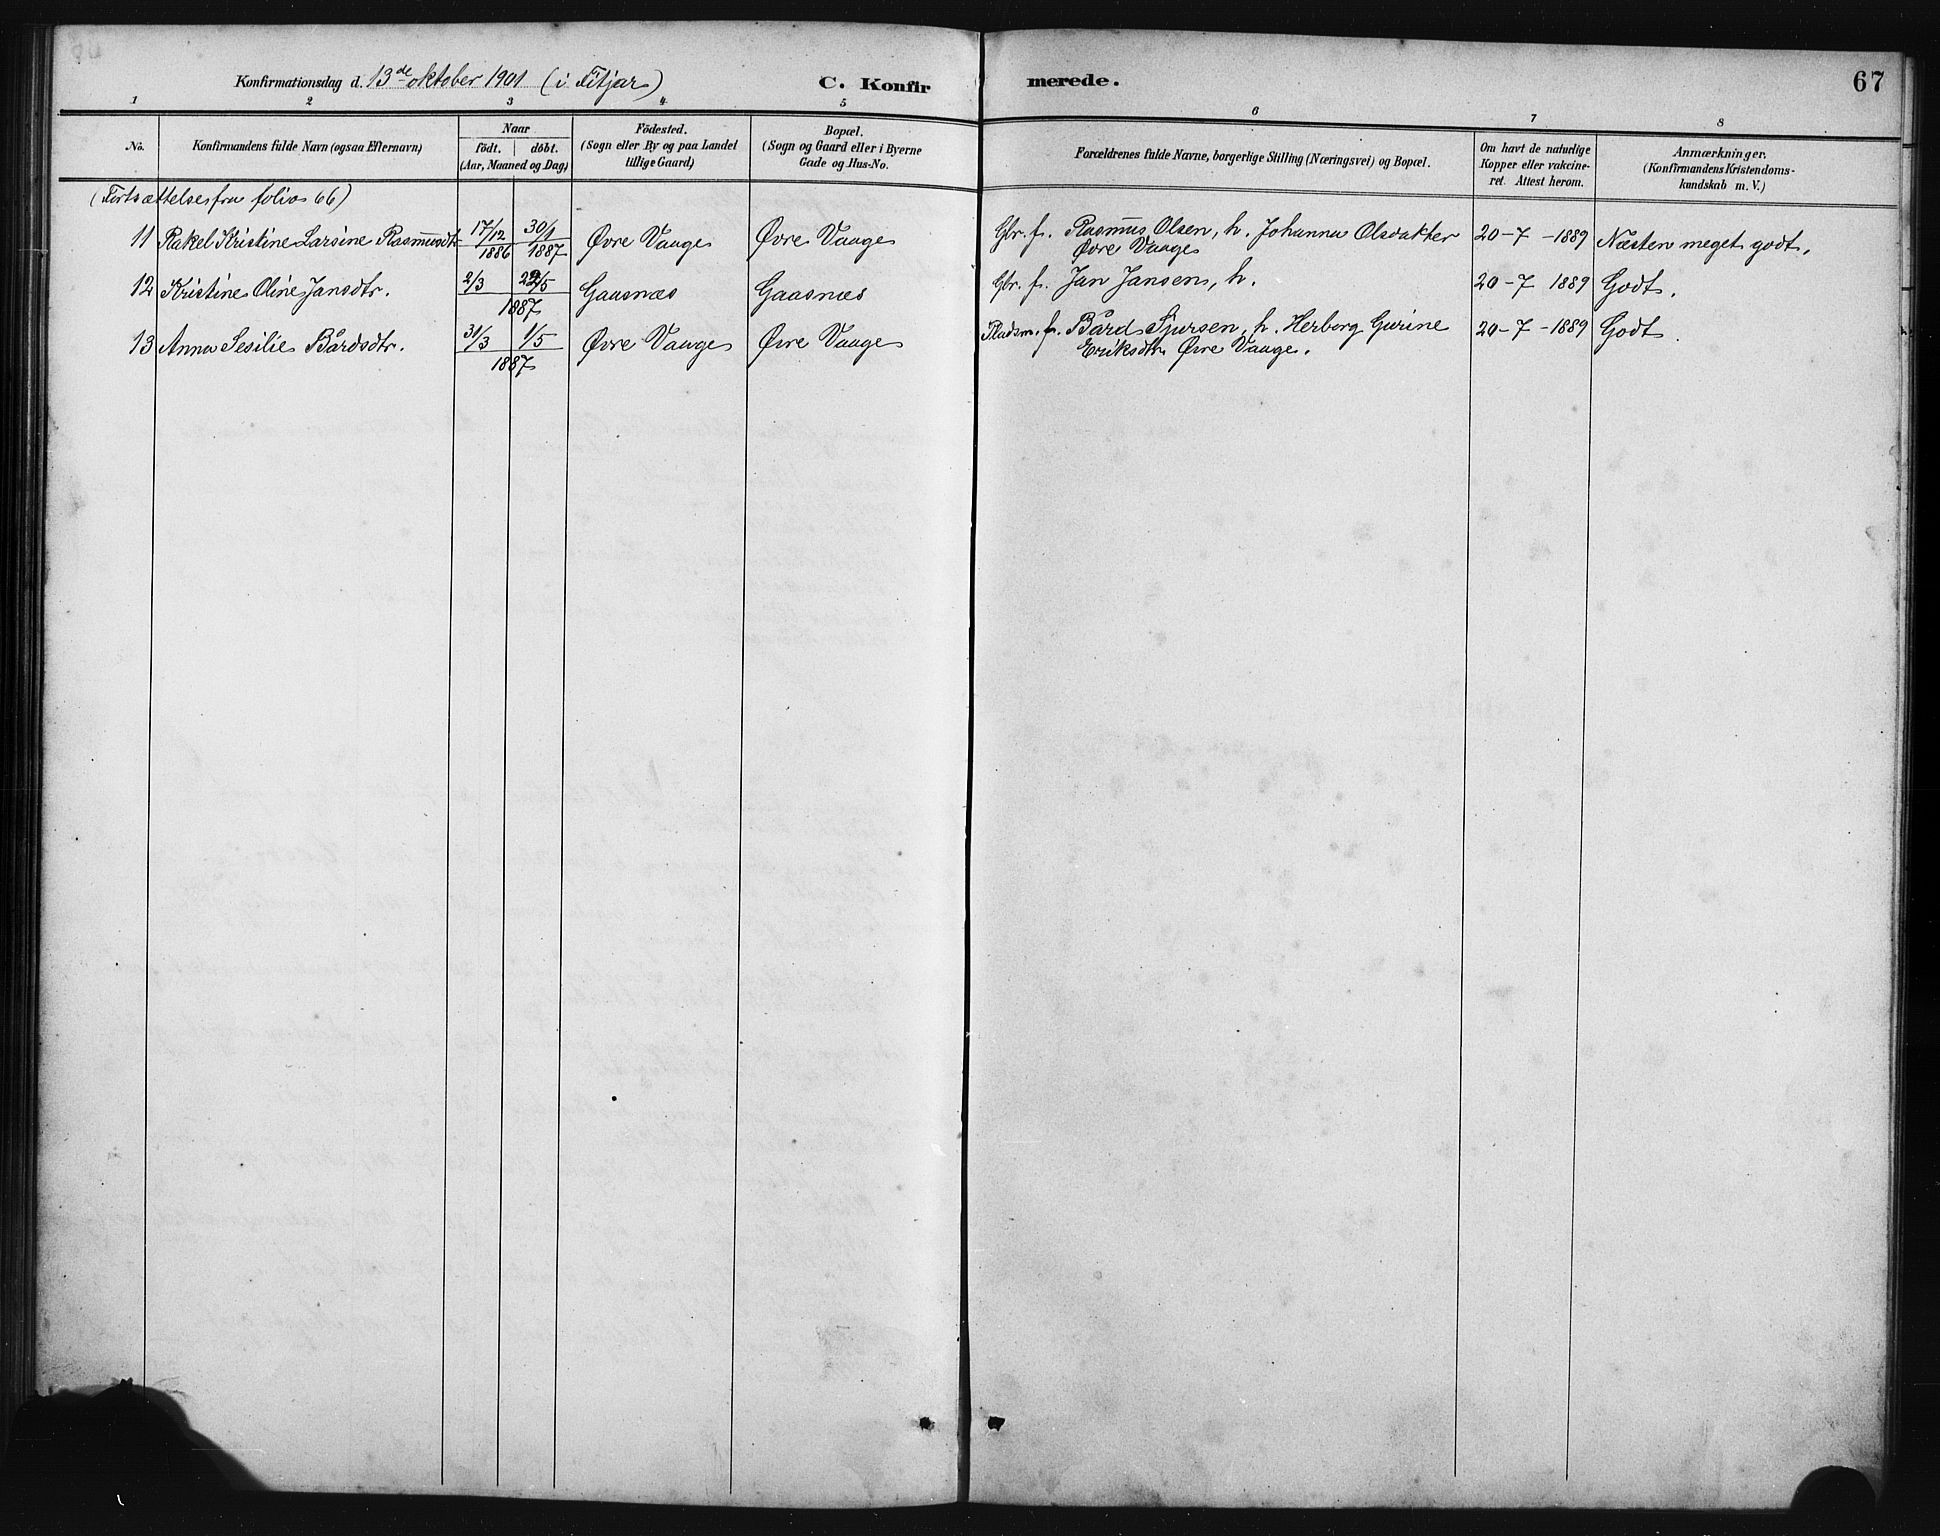 Konfirmationsdag d. 13de oktober 1901 (i Fitjar) C. Konfirmerede. 67
1 2 3 4 5 6 7 8
No. Konfirmandens fulde Navn (ogsaa Efternavn) Naar födt. döbt. (Aar, Maaned og Dag) Födested. (Sogn eller By og paa Landet tillige Gaard) Bopæl. (Sogn og Gaard eller i Byerne Gade og Hus-No. Forældrenes fulde Navne, borgerlige Stilling (Næringsvei) og Bopæl. Om havt de naturlige Kopper eller vakcineret. Attest herom. Anmærkninger. (Konfirmandens Kristendomskundskab m. V.)
(Fortsættelse fra folio 66)
11 Rakel Kristine Larsine Rasmusdtr 17/12 1886 30/1 1887 Øvre Vaage Øvre Vaage Gbr. f. Rasmus Olsen, h. Johanna Olsdatter Øvre Vaage 20-7-1889 Næsten meget godt.
12 Kristine Oline Jansdtr. 2/3 22/5 1887 Gaasnæs Gaasnæs Gbr. f. Jan Jansen, h. 20-7 1889 Godt.
13 Anna Sesilie Bårdsdtr. 31/3 1/5 1887 Øvre Vaage Øvre Vaage Pladsm. f. Bård Sjursen, h. Herborg Gurine Eriksdtr Øvre Vaage. 20-7-1889 Godt.